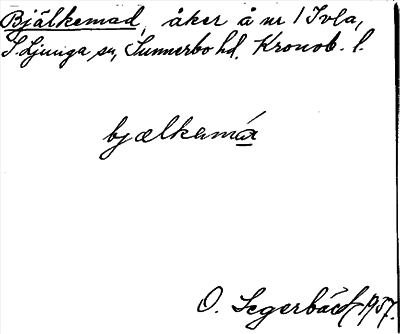 Bjälkemad, åker å nr 1 Ivla,
S. Ljunga sn, Sunnerbo hd. Kronob. l.
bjælkamár
O. Segerbäck 1957.